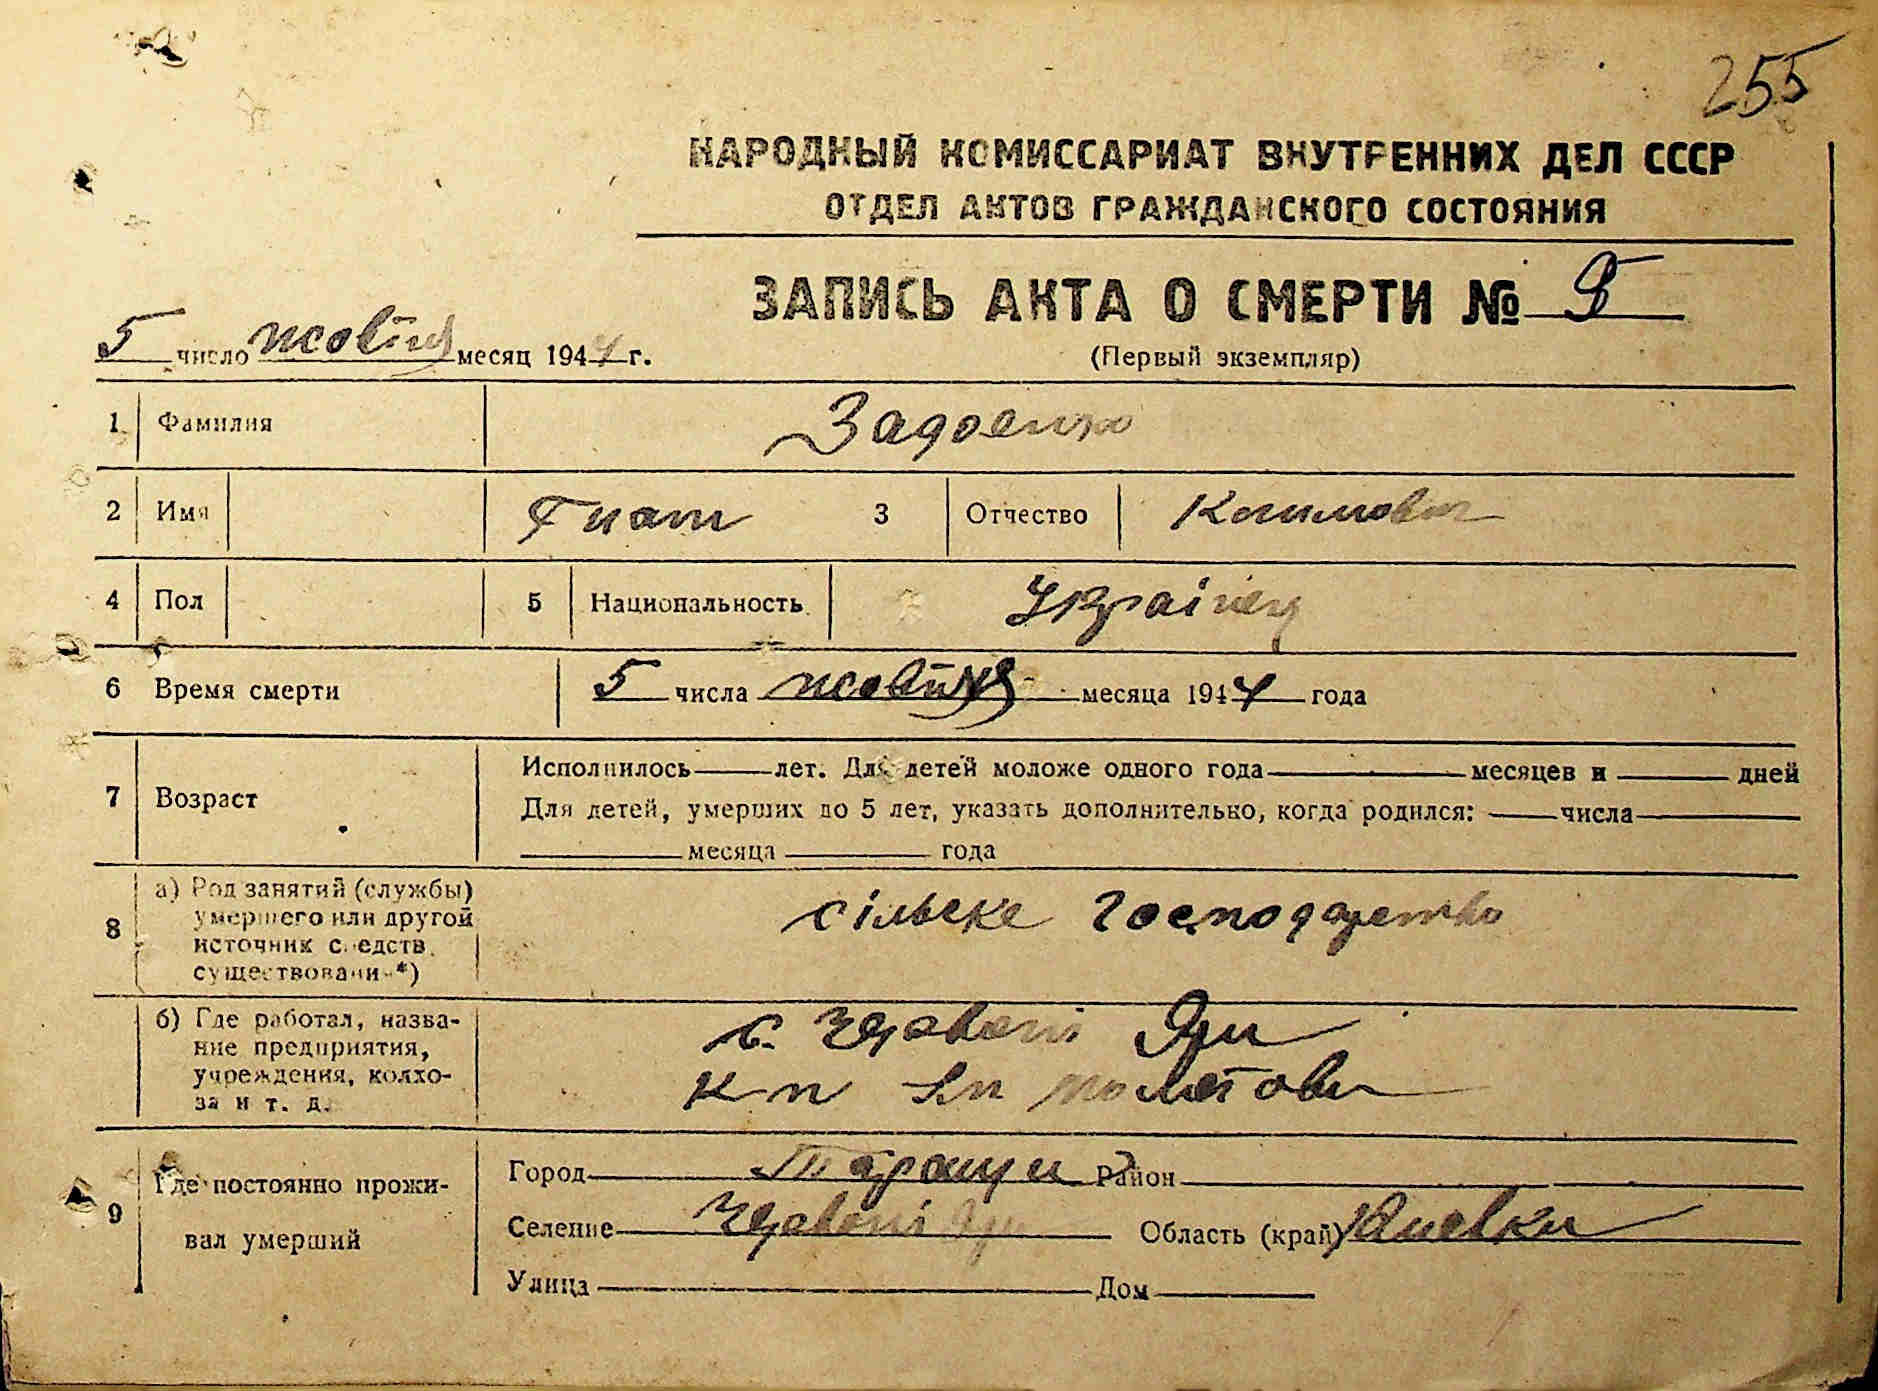 255
НАРОДНЫЙ КОМИССАРИАТ ВНУТРЕННИХ ДЕЛ СССР
ОТДЕЛ АКТОВ ГРАЖДАНСКОГО СОСТОЯНИЯ
ЗАПИСЬ АКТА О СМЕРТИ №
5 число жовтня месяц 1944 г.
(Первый экземпляр)
1 Фамилия Задоенко
2 Имя Гнат 3 Отчество
4 Пол 5 Национальность Українец
6 Время смерти 5 числа жовтня месяца 1944 года
7 Возраст Исполнилось лет. Для детей моложе одного года месяцев и дней
Для детей, умерших до 5 лет, указать дополнительно, когда родился: числа
месяца года
8 а) Род занятий (службы)
умершего или другой
источник средств
существования*)
сільске господарство
б) Где работал, назва-
ние предприятия,
учреждения, колхо-
за и т. д.
с. Яри
к-п
9 Где постоянно прожи-
вал умерший
Город Таращи Район
Селение Яри Область (край) Киевки
Улица Дом